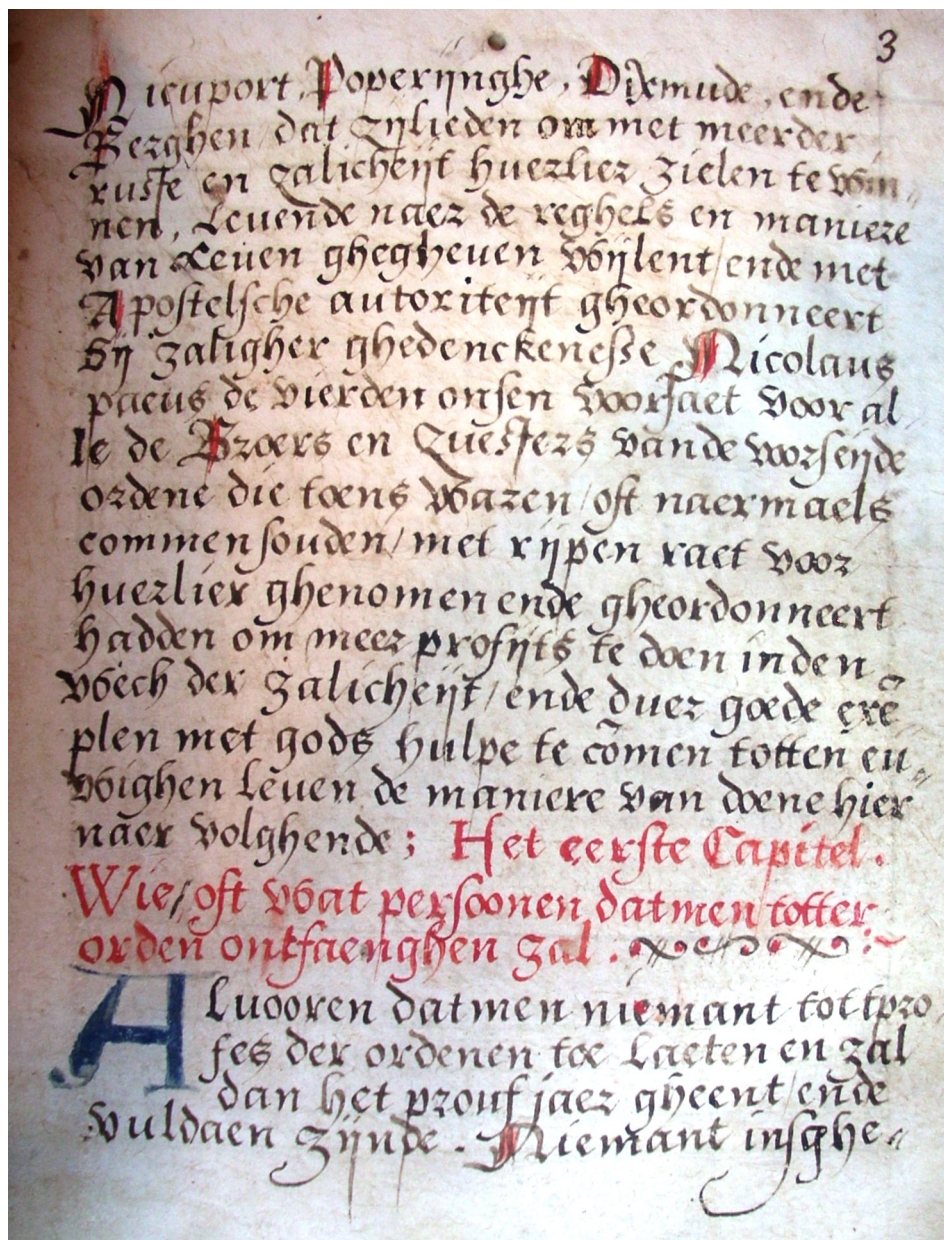 3
Nieuport, Poperijnghe, Dixmude, ende
Berghen, dat zijlieden om met meerder
ruste en zalicheijt huerlier zielen te win„
nen, Levende naer de reghels en maniere
van Leven ghegheven wijlent/ende met
Apostelsche autoriteijt gheordonneert
bij zaligher ghedenckenesse Nicolaus
paeus de vierden onsen voorsaet voor al„
le de Broers en Questers vande voorseijde
ordene die toens waren/oft naermaels
commen souden/met rijpen raet voor
huerlier ghenomen ende gheordonneert
hadden om meer profijts te doen inden
wech der zalicheijt/ende duer goede exē
plen met gods hulpe te cōmen totten eu„
wighen Leven de maniere van doene hier
naer volghende; Het eerste Capitel.
Wie/oft wat persoonen datmen totter
orden ontfaenghen zal.
Aluooren datmen niemant tottpro
fes der ordenen toe Laeten en zal
dan het prouf jaer gheent/ende
vuldaen zijnde. Niemant insghe„